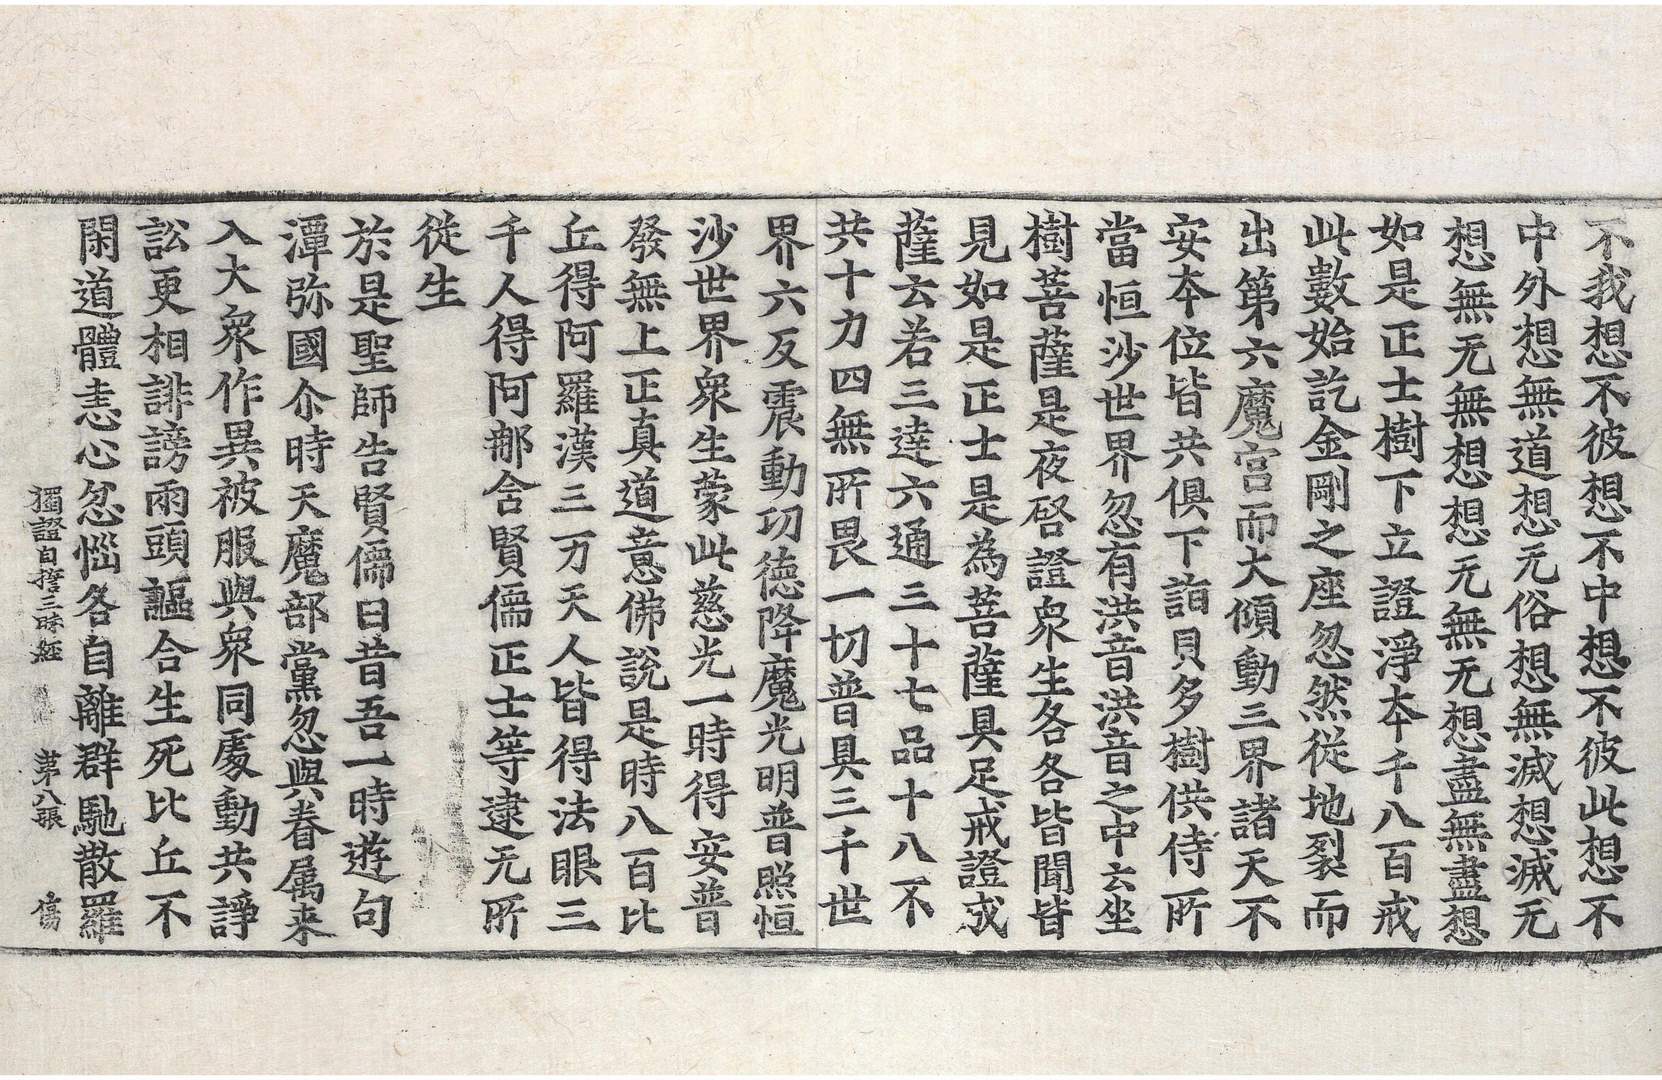 不我想不彼想不中想不彼此想不
中外想無道想无俗想無滅想滅无
想無无無想想无無无想盡無盡想
如是正士樹下立證淨本千八百戒
此數始訖金剛之座忽然從地裂而
出第六魔宮而大傾動三界諸天不
安本位皆共俱下詣貝多樹供侍所
當恒沙世界忽有洪音洪音之中云坐
樹菩薩是夜啓證衆生各各皆聞皆
見如是正士是為菩薩具足戒證或
薩云若三達六通三十七品十八不
共十力四無所畏一切普具三千世
界六反震動切德降魔光明普照恒
沙世界衆生蒙此慈光一時得安普
發無上正真道意佛說是時八百比
丘得阿羅漢三万天人皆得法眼三
千人得阿那含賢儒正士等逮无所
從生
於是聖師告賢儒曰昔吾一時遊句
潭弥國尒時天魔部黨忽與眷属来
入大衆作異被服與衆同處動共諍
訟更相誹謗兩頭謳合生死比丘不
閑道體恚心忿惱各自離群馳散羅
獨證自誓三昧經　第八張　傷